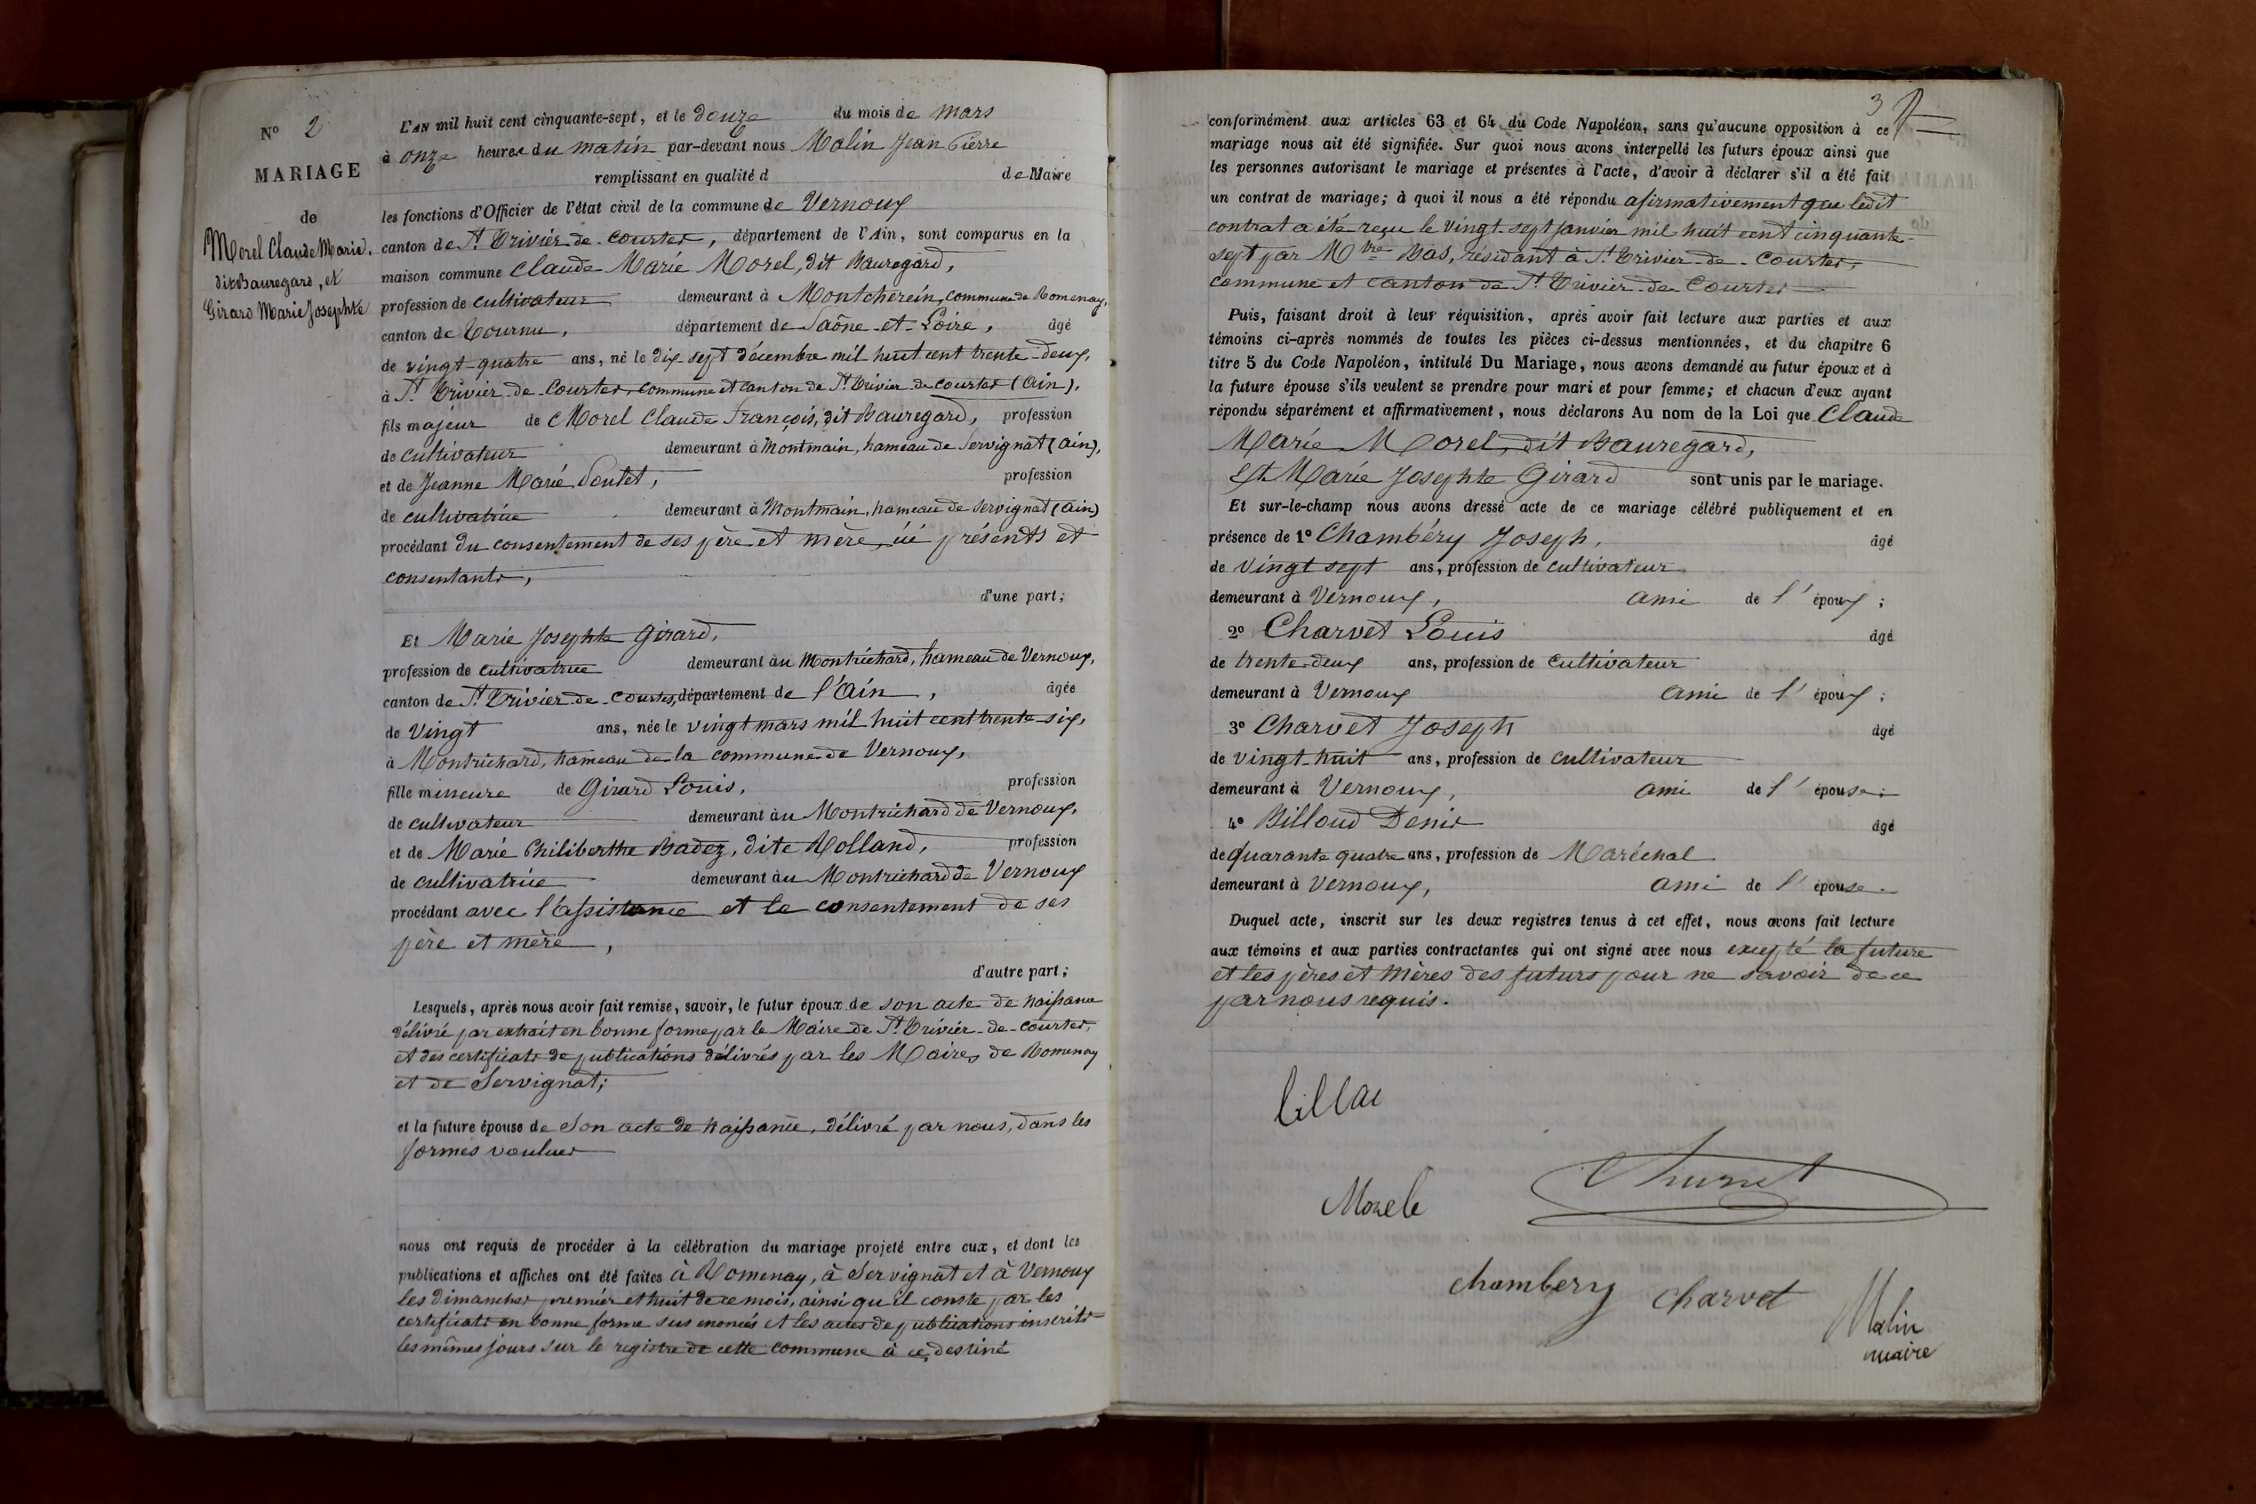 Nº 2
MARIAGE
de
Morel Claude Marie,
dit Bauregard, et
Girard Marie Josephte
L'AN mil huit cent cinquante-sept, et le douze du mois de mars
à onze heures du matin par-devant nous Malin Jean Pierre
remplissant en qualité d de Maire
les fonctions d'Officier de l'état civil de la commune de Vernoux
canton de St Trivier-de-Courtes, département de l'Ain, sont comparus en la
maison commune Claude Marie Morel, dit Bauregard,
profession de cultivateur demeurant à Montcherein, commune de Romenay,
canton de Tournu, département de Saône-et-Loire, âgé
de vingt-quatre ans, né le dix sept décembre mil huit cent trente-deux,
à St Trivier-de-Courtes, commune et canton de St Trivier de Courtes (Ain),
fils majeur de Morel Claude François, dit Bauregard, profession
de cultivateur demeurant à Montmain, hameau de Servignat (Ain),
et de Jeanne Marie Poutet, profession
de cultivatrice demeurant à Montmain, hameau de Servignat (Ain)
procédant du consentement de ses père et mère, présents et
consentants,
d'une part;
Et Marie Josephte Girard,
profession de cultivatrice demeurant au Montrichard, hameau de Vernoux,
canton de St Trivier-de-Courtes, département de l'Ain, âgée
de vingt ans, née le vingt mars mil huit cent trente-six,
à Montrichard, hameau de la commune de Vernoux,
fille mineure de Girard Louis, profession
de cultivateur demeurant au Montrichard de Vernoux,
et de Marie Philiberthe Badez, dite Rolland, profession
de cultivatrice demeurant au Montrichard de Vernoux
procédant avec l'assistance et le consentement de ses
père et mère,
d'autre part;
Lesquels, après nous avoir fait remise, savoir, le futur époux de son acte de naissance
délivré par extrait en bonne forme par le Maire de St Trivier-de-Courtes,
et des certificats de publications délivrés par les Maires de Romenay
et de Servignat;
et la future épouse de son acte de naissance, délivré par nous, dans les
formes voulues
nous ont requis de procéder à la célébration du mariage projeté entre eux, et dont les
publications et affiches ont été faites à Romenay, à Servignat et à Vernoux
les dimanches premier et huit de ce mois, ainsi qu'il conste par les
certificats en bonne forme sus enoncés et les actes de publications inscrits
les mêmes jours sur le registre de cette commune à ce destiné
3
conformément aux articles 63 et 64 du Code Napoléon, sans qu'aucune opposition à ce
mariage nous ait été signifiée. Sur quoi nous avons interpellé les futurs époux ainsi que
les personnes autorisant le mariage et présentes à l'acte, d'avoir à déclarer s'il a été fait
un contrat de mariage; à quoi il nous a été répondu afirmativement que ledit
contrat a été reçu le vingt-sept janvier mil huit cent cinquante-
sept par Mtre Bas, résidant à St Trivier-de-Courtes,
commune et canton de St Trivier-de-Courtes
Puis, faisant droit à leur réquisition, après avoir fait lecture aux parties et aux
témoins ci-après nommés de toutes les pièces ci-dessus mentionnées, et du chapitre 6
titre 5 du Code Napoléon, intitulé Du Mariage, nous avons demandé au futur époux et à
la future épouse s'ils veulent se prendre pour mari et pour femme; et chacun d'eux ayant
répondu séparément et affirmativement, nous déclarons Au nom de la Loi que Claude
Marie Morel, dit Bauregard,
Et Marie Josephte Girard sont unis par le mariage.
Et sur-le-champ nous avons dressé acte de ce mariage célébré publiquement et en
présence de 1º Chambéry Joseph, âgé
de vingt sept ans, profession de cultivateur
demeurant à Vernoux, ami de l'époux;
2º Charvet Louis âgé
de trente-deux ans, profession de cultivateur
demeurant à Vernoux ami de l'époux;
3º Charvet Joseph âgé
de vingt-huit ans, profession de cultivateur
demeurant à Vernoux, ami de l'épouse;
4º Billoud Denis âgé
de quarante quatre ans, profession de Maréchal
demeurant à Vernoux, ami de l'épouse.
Duquel acte, inscrit sur les deux registres tenus à cet effet, nous avons fait lecture
aux témoins et aux parties contractantes qui ont signé avec nous excepté la future
et les pères et mères des futurs pour ne savoir de ce
par nous requis.
Morele
chambery charvet
Malin
maire